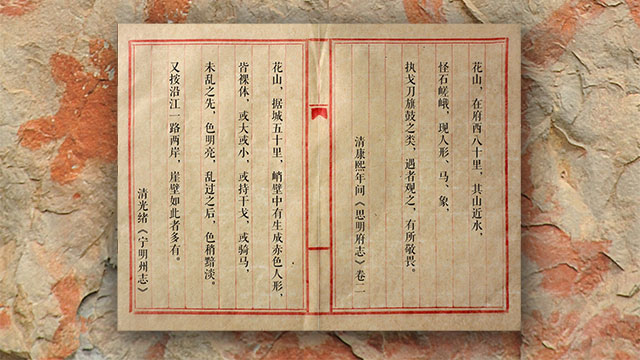 花山，在府西八十里，其山近水，
怪石嵯峨，现人形、马、象，
执戈刀旗鼓之类，遇者观之，有所敬畏。
清康熙年间《思明府志》卷二
花山，据城五十里，峭壁中有生成赤色人形，
皆裸体，或大或小，或持干戈，或骑马，
未乱之先，色明亮，乱过之后，色稍黯淡。
又按沿江一路两岸，崖壁如此者多有。
清光绪《宁明州志》